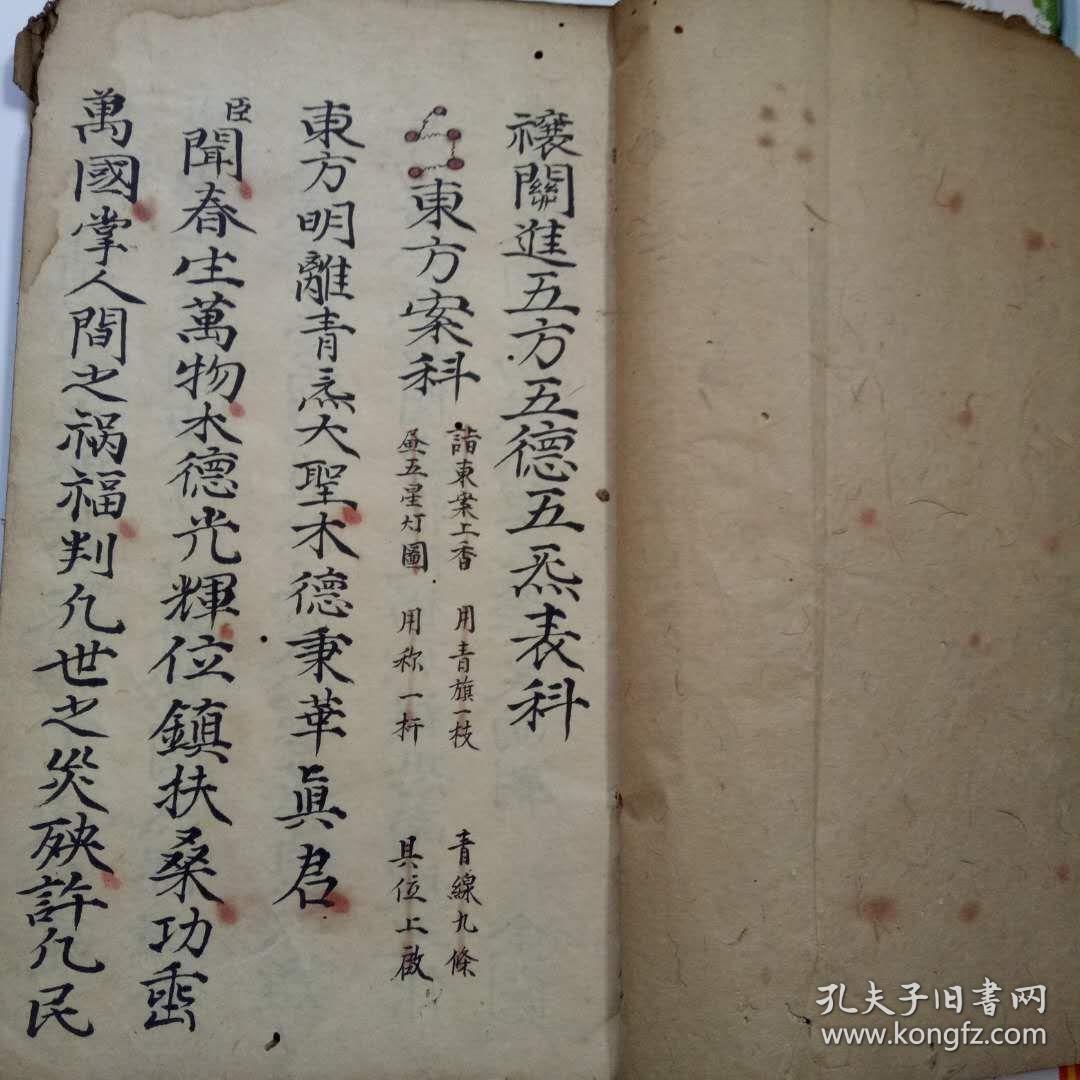 禳関進五方五德五炁表科
東方案科
詣東案上香 用青旗一枝 青線九條
五星灯圖 用称一杆 具位上啟
東方明離青炁大聖木德秉華真君
臣聞春生萬物木德光輝位鎮扶桑功垂
萬國掌人間之禍福判凢世之災殃許凢民
孔夫子旧书网
www.kongfz.com